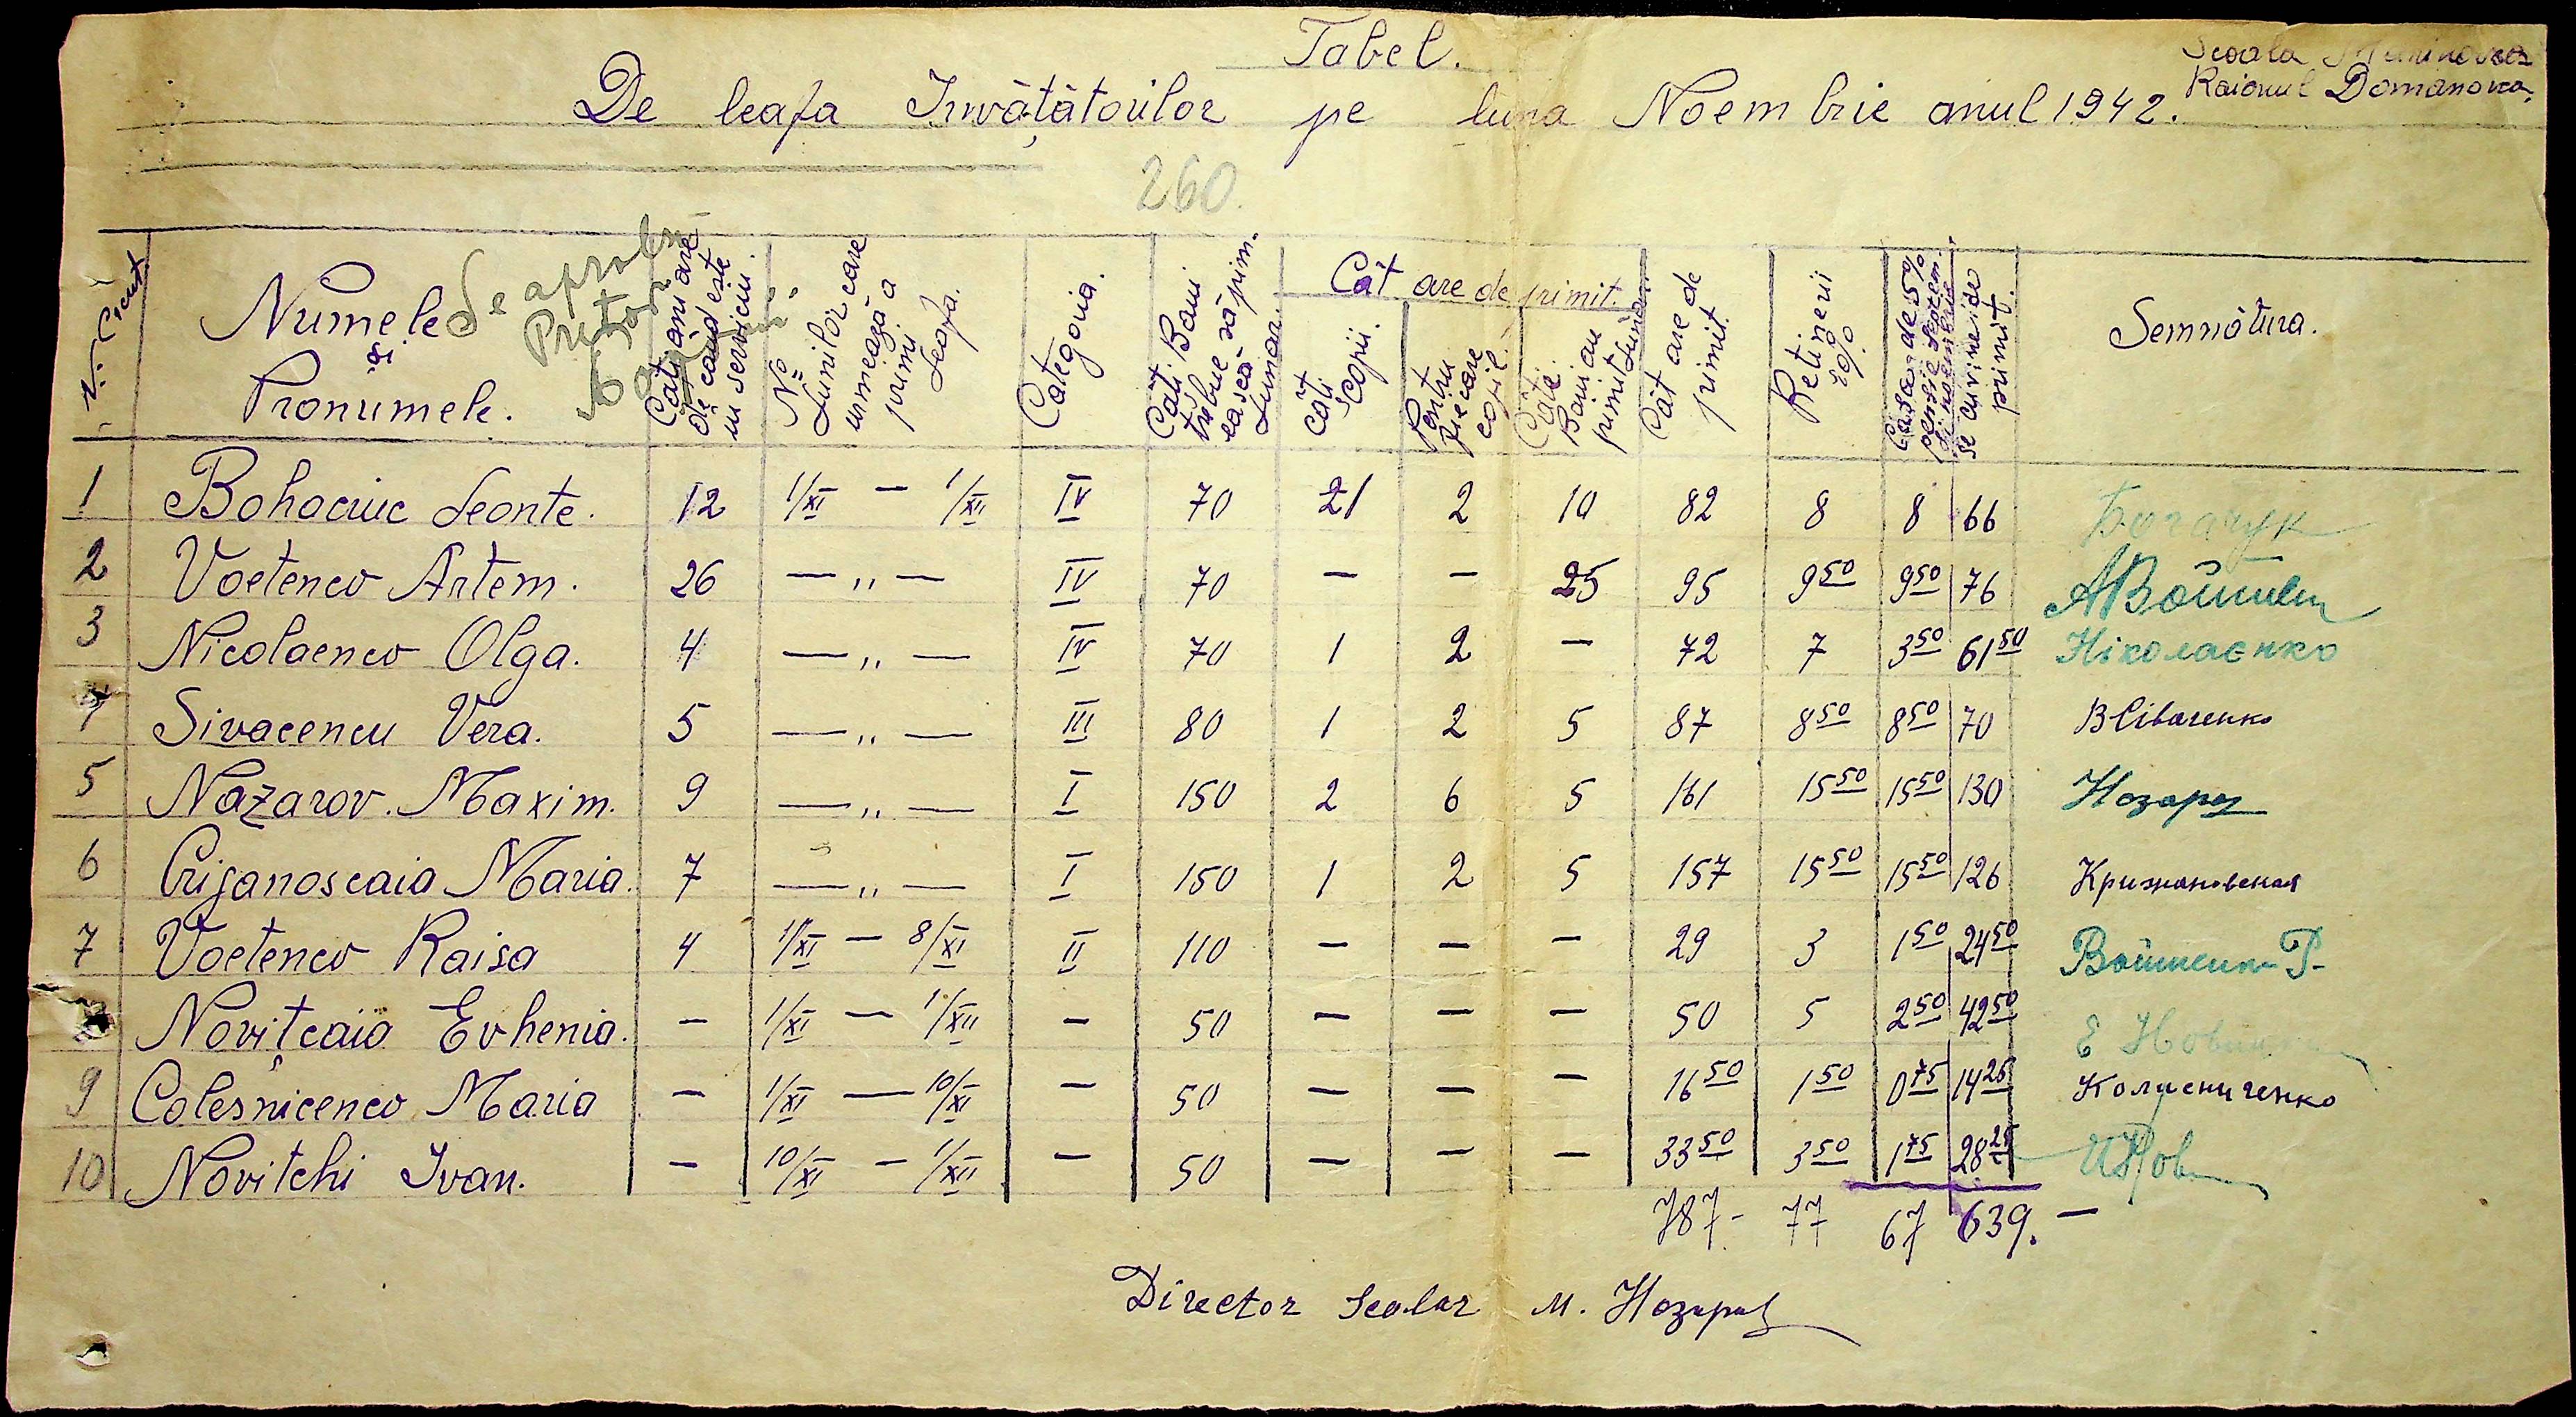 Tabel.
Scoala
Raionul Domanovca,
De leafa Invățătorilor pe luna Noembrie anul 1942.
260.
Se aproba
Pretor
Nr. Crent.
Numele
și
Pronumele.
Câți ani are
de când este
in serviciu.
No
Lunilor care
urmează a
primi
Leafa.
Categoria.
Câți Bani
trebue să prim-
ească
Lunar.
Cât are de primit.
câți
copii.
Pentru
fiecare
copil.
Câți
Bani au
primit Lunar
Cât are de
primit.
Retinerii
10%
Casa de 5%
pensie
se cuvine de
primit.
Semnătura.
1 Bohaciuc Leonte. 12 1/XI — 1/XII IV 70 21 2 10 82 8 8 66 Богачук
2 Voetenco Artem. 26 — „ — IV 70 — — 25 95 9 50 9 50 76 АВойтен
3 Nicolaenco Olga. 4 — „ — IV 70 1 2 — 72 7 3 50 61 50 Ніколаєнко
4 Sivacencu Vera. 5 — „ — III 80 1 2 5 87 8 50 8 50 70 В Сіваченко
5 Nazarov. Maxim. 9 — „ — I 150 2 6 5 161 15 50 15 50 130 Назаров
6 Crijanoscaia Maria. 7 — „ — I 150 1 2 5 157 15 50 15 50 126 Крижановская
7 Voetenco Raisa 4 1/XI — 8/XI II 110 — — — 29 3 1 50 24 50 Войтенко Р-
Novițcaia Evhenia. — 1/XI — 1/XII — 50 — — — 50 5 2 50 42 50 Е Новицка
9 Colesnicenco Maria — 1/XI — 10/XI — 50 — — — 16 50 1 50 0 75 14 25 Колисниченко
10 Novitchi Ivan. — 10/XI — 1/XII — 50 — — — 33 50 3 50 1 75 28 25 ИНов
787- 77 67 639. —
Director Scolar М. Назаров